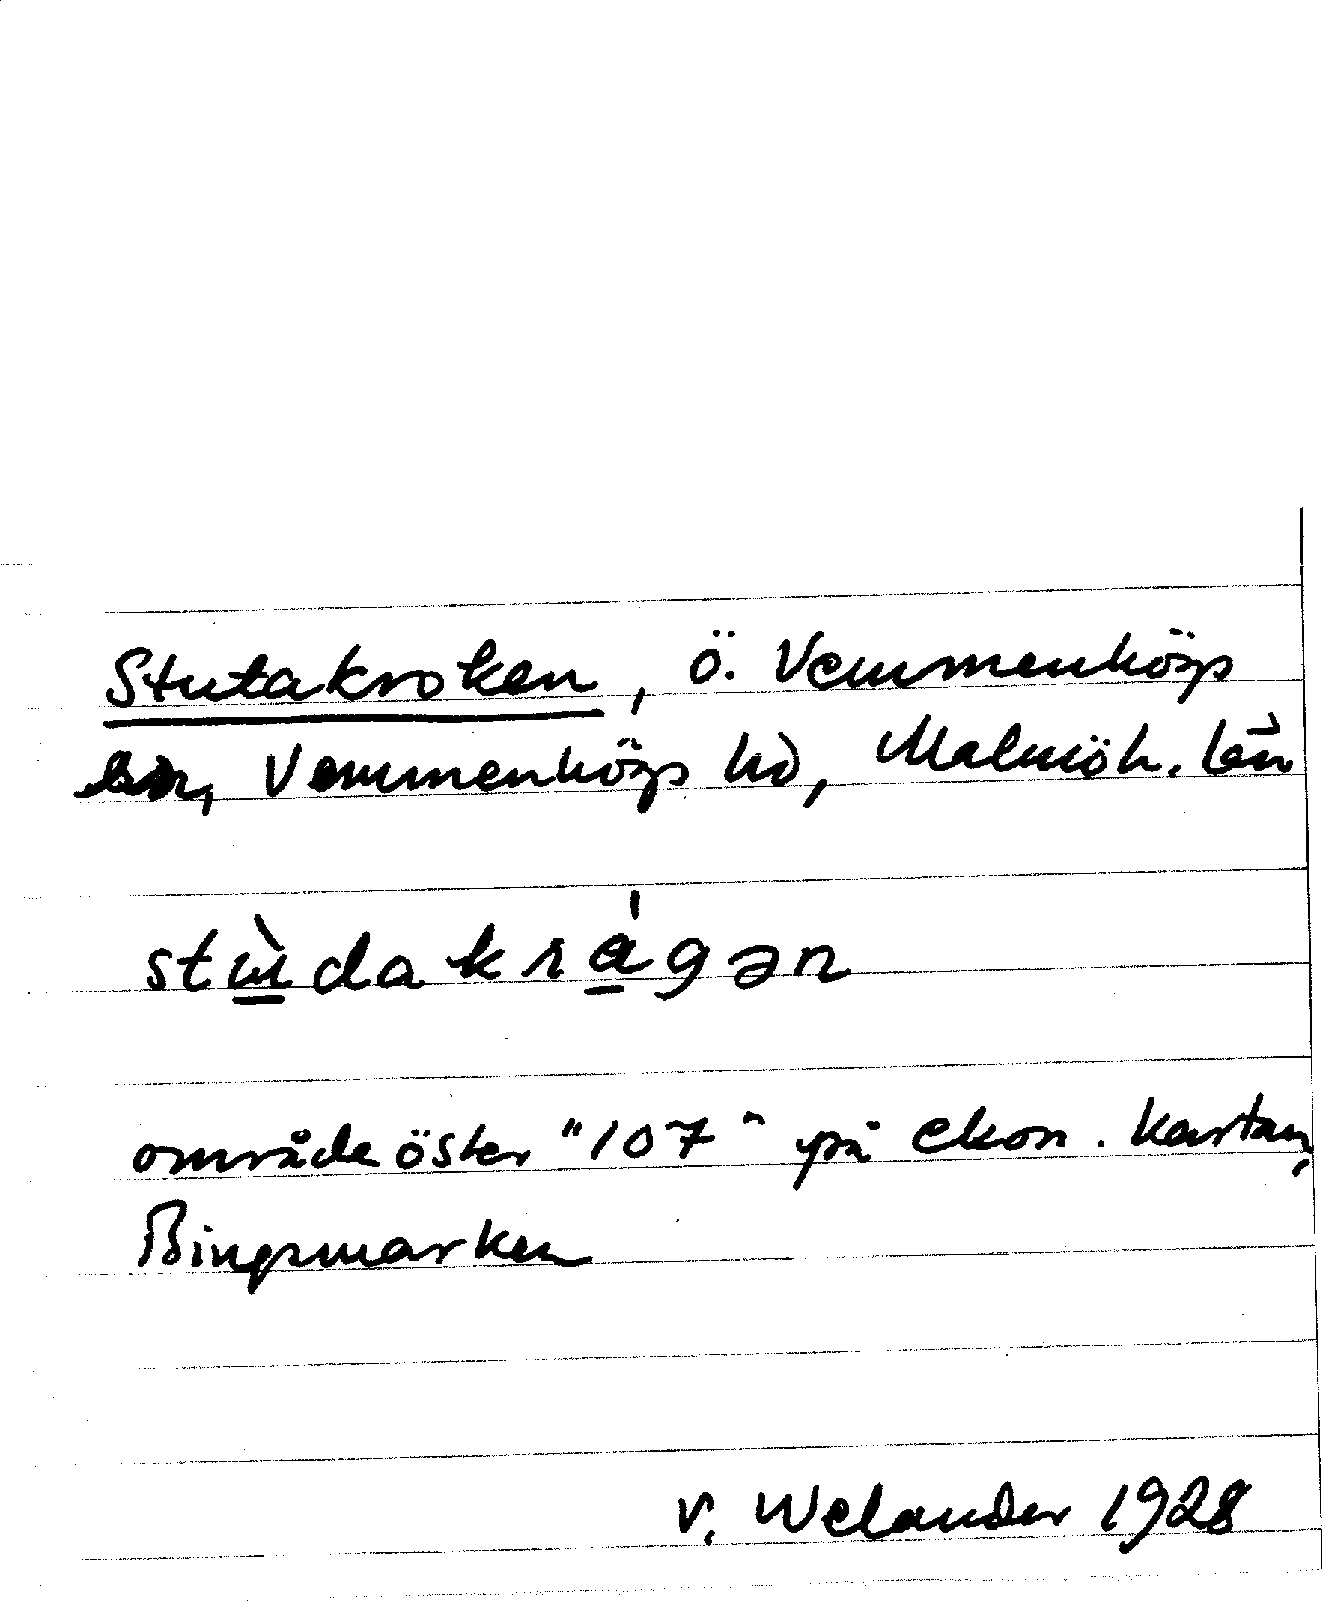 Stutakroken, Ö. Vemmenhögs
sn, Vemmenhögs hd, Malmöh. län
stɯ̀dakrágən
område öster "107" på ekon. kartan,
Bingsmarken
V. Welander 1928